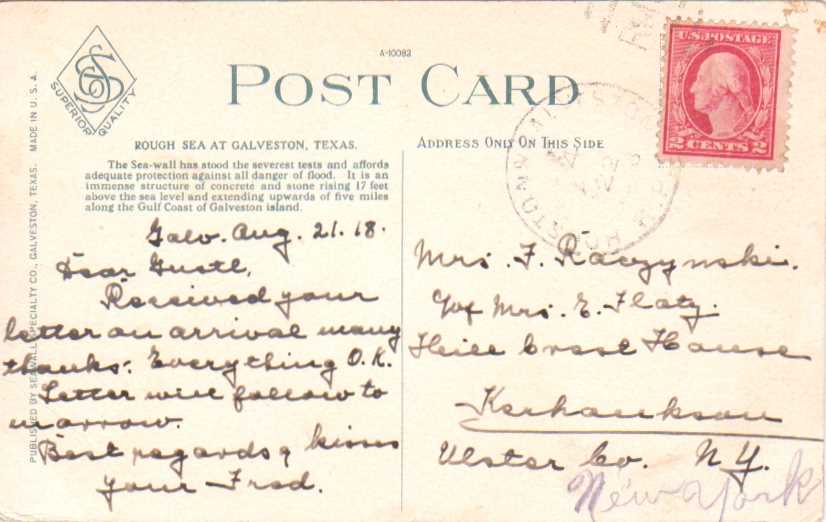 A-10083
POST CARD
SUPERIOR QUALITY
ROUGH SEA AT GALVESTON, TEXAS.
The Sea-wall has stood the severest tests and affords
adequate protection against all danger of flood. It is an
immense structure of concrete and stone rising 17 feet
above the sea level and extending upwards of five miles
along the Gulf Coast of Galveston island.
MADE IN U.S.A.
PUBLISHED BY SEAWALL SPECIALTY CO., GALVESTON, TEXAS.
Galv. Aug. 21. 18.
Dear Gustl,
Received your
letter on arrival many
thanks. Everything O.K.
Letter will follow to
morrow.
Best regards & kisses
your Fred.
ADDRESS ONLY ON THIS SIDE
U.S. POSTAGE
2 CENTS 2
Mrs. F. Raczynski.
c/of Mrs. E. Flaty.
Heill Crest House
Kerhankson
Ulster Co. N.Y.
New York